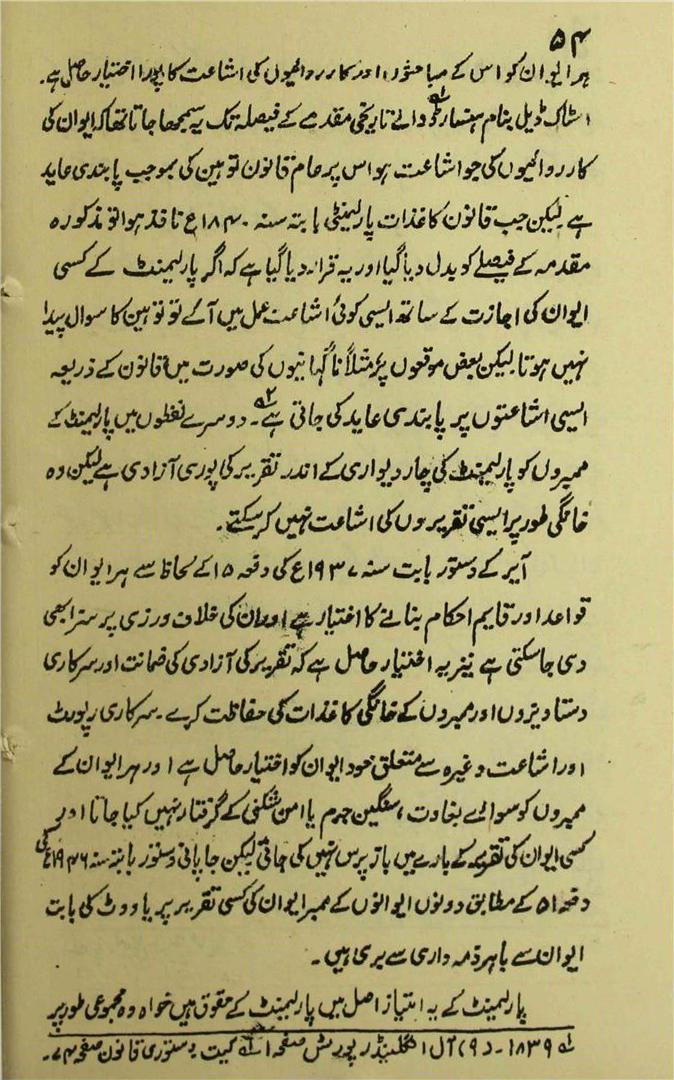 ۵۴
ہر ایوان کو اس کے مباحثوں اور کارروائیوں کی اشاعت کا پورا اختیار حاصل ہے۔
اسٹاک ڈیل بنام ہنسارڈ والے تاریخی مقدمے کے فیصلہ تک یہ سمجھا جاتا تھا کہ ایوان کی
کارروائیوں کی جو اشاعت ہو اس پر عام قانون توہین کی بموجب پابندی عاید
ہے لیکن جب قانون کاغذات پارلیمنٹی بابتہ سنہ ۱۸۴۰ع نافذ ہوا تو مذکورہ
مقدمہ کے فیصلے کو بدل دیا گیا اور یہ قرار دیا گیا ہے کہ اگر پارلیمنٹ کے کسی
ایوان کی اجازت کے ساتھ ایسی کوئی اشاعت عمل میں آئے تو توہین کا سوال پیدا
نہیں ہوتا لیکن بعض موقعوں پر مثلاً ناگہانیوں کی صورت میں قانون کے ذریعہ
ایسی اشاعتوں پر پابندی عاید کی جاتی ہے۲؎۔ دوسرے لفظوں میں پارلیمنٹ کے
ممبروں کو پارلیمنٹ کی چار دیواری کے اندر تقریر کی پوری آزادی ہے لیکن وہ
خانگی طور پر ایسی تقریروں کی اشاعت نہیں کرسکتے۔
آیر کے دستور بابت سنہ ۱۹۳۷ع کی دفعہ ۱۵ کے لحاظ سے ہر ایوان کو
قواعد اور قایم احکام بنانے کا اختیار ہے اور ان کی خلاف ورزی پر سزا بھی
دی جاسکتی ہے نیز یہ اختیار حاصل ہے کہ تقریر کی آزادی کی ضمانت اور سرکاری
دستاویزوں اور ممبروں کے خانگی کاغذات کی حفاظت کرے۔ سرکاری رپورٹ
اور اشاعت وغیرہ سے متعلق خود ایوان کو اختیار حاصل ہے اور ہر ایوان کے
ممبروں کو سوائے بغاوت، سنگین جرم یا امن شکنی کے گرفتار نہیں کیا جاتا اور
کسی ایوان کی تقریر کے بارے میں باز پرس نہیں کی جاتی لیکن جاپانی دستور بابتہ سنہ ۱۹۴۶ع کی
دفعہ ۵۱ کے مطابق دونوں ایوانوں کے ممبر ایوان کی کسی تقریر پر یا ووٹ کی بابت
ایوان سے باہر ذمہ داری سے بری ہیں۔
پارلیمنٹ کے یہ امتیاز اصل میں پارلیمنٹ کے حقوق ہیں خواہ وہ مجموعی طور پر
۱؎ ۱۸۳۹۔ (۹) آل انگلینڈ رپورٹس صفحہ ۱ ۲؎ کیت دستوری قانون صفحہ ۷۴۔